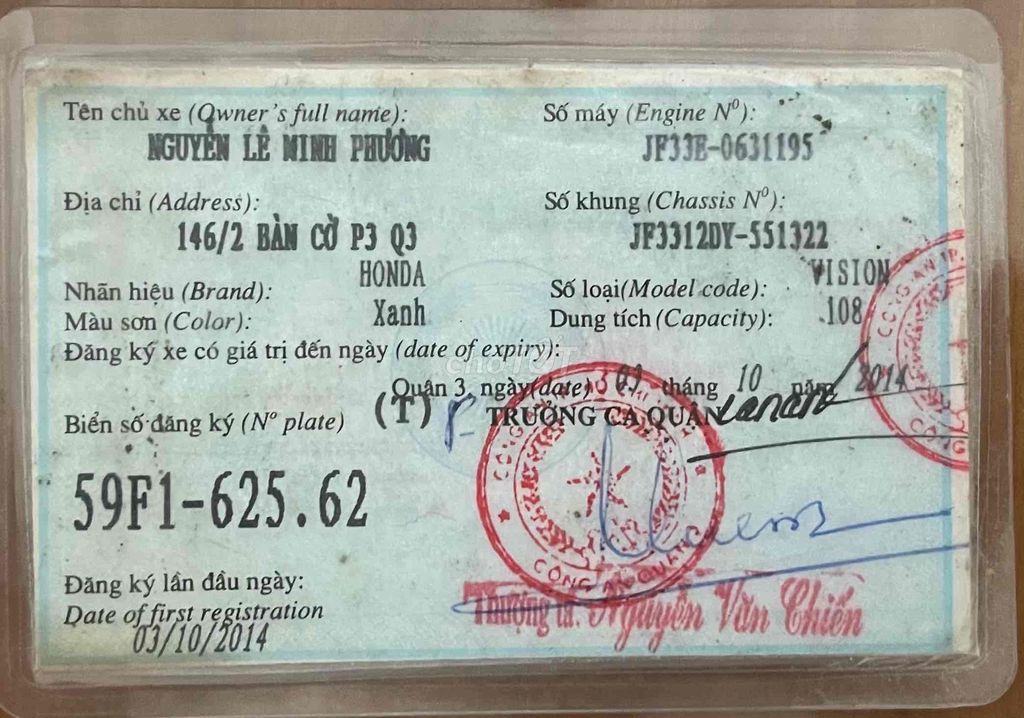 Tên chủ xe (Owner's full name):
NGUYỄN LÊ MINH PHƯƠNG
Số máy (Engine Nº):
JF33E-0631195
Địa chỉ (Address):
146/2 BÀN CỜ P3 Q3
Số khung (Chassis Nº):
JF3312DY-551322
Nhãn hiệu (Brand): HONDA
Số loại(Model code): VISION
Màu sơn (Color): Xanh
Dung tích (Capacity): 108
Đăng ký xe có giá trị đến ngày (date of expiry):
choTỐT
Quận 3, ngày(date) 03 tháng 10 năm 2014
Biển số đăng ký (Nº plate) (T) TRƯỞNG CA QUẬN
59F1-625.62
CÔNG AN QUẬN
CÔNG AN TP.
CÔNG
Đăng ký lần đầu ngày:
Date of first registration
03/10/2014
Thượng tá. Nguyễn Văn Chiến